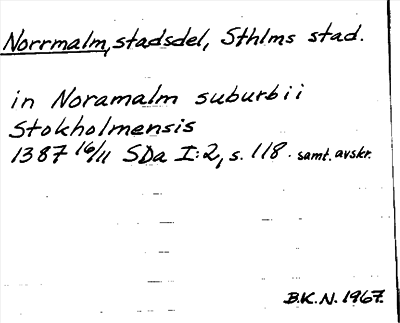 Norrmalm, stadsdel, Sthlms stad.
in Noramalm suburbii
Stokholmensis
1387 16/11 SDa I:2, s. 118. samt. avskr.
B.K.N. 1967.